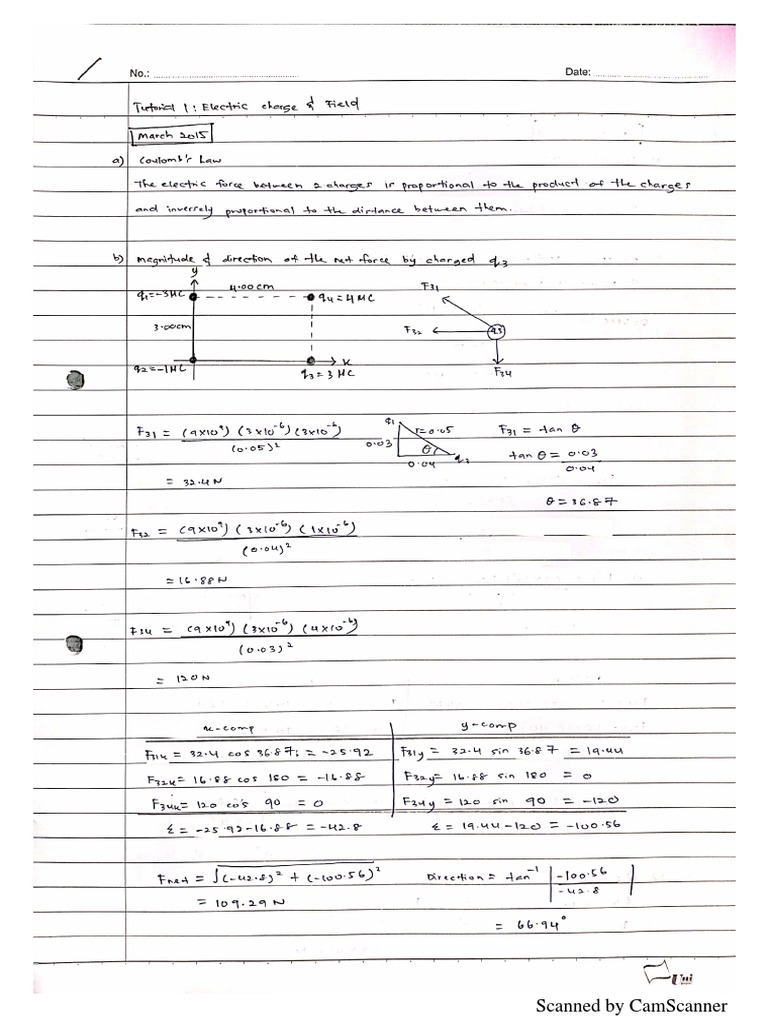 No.: ............................................
Date: ............................................
Tutorial 1 : Electric charge & Field
March 2015
a) Coulomb's Law
The electric force between 2 charges is proportional to the product of the charges
and inversely proportional to the distance between them.
b) magnitude & direction of the net force by charged q3
y
q1=-3μC
4.00cm
q4=4μC
3.00cm
q2=-1μC
x
q3=3μC
F31
F32
q3
F34
F31 = (9x10⁹)(3x10⁻⁶)(3x10⁻⁶)
(0.05)²
= 32.4N
q1
r=0.05
0.03
θ
0.04
q3
F31 = tan θ
tan θ = 0.03
0.04
θ = 36.87
F32 = (9x10⁹)(3x10⁻⁶)(1x10⁻⁶)
(0.04)²
= 16.88N
F34 = (9x10⁹)(3x10⁻⁶)(4x10⁻⁶)
(0.03)²
= 120N
x-comp
y-comp
F31x = 32.4 cos 36.87; = -25.92
F31y = 32.4 sin 36.87 = 19.44
F32x = 16.88 cos 180 = -16.88
F32y = 16.88 sin 180 = 0
F34x = 120 cos 90 = 0
F34y = 120 sin 90 = -120
Σ = -25.92-16.88 = -42.8
Σ = 19.44-120 = -100.56
Fnet = √(-42.8)² + (-100.56)²
= 109.29N
Direction = tan⁻¹ | -100.56
-42.8 |
= 66.94°
Uni
Scanned by CamScanner